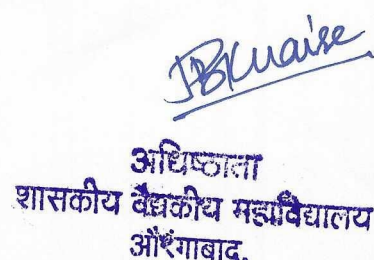 अधिष्ठाता
शासकीय वैद्यकीय महाविद्यालय
औरंगाबाद.